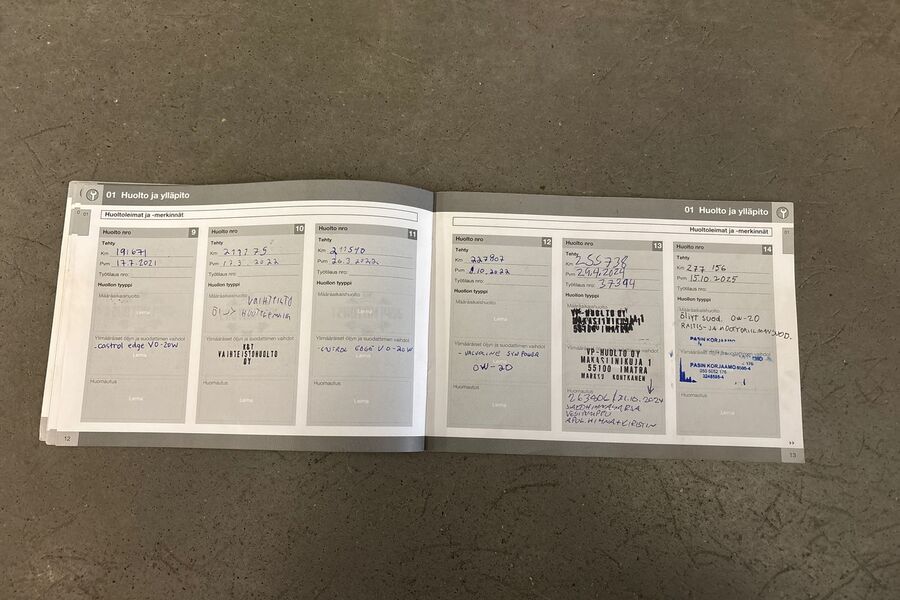 01 Huolto ja ylläpito
01
Huoltoleimat ja -merkinnät
Huolto nro 9
Tehty
Km 191671
Pvm 17.7.2021
Työtilaus nro:
Huollon tyyppi
Määräaikaishuolto
Leima
Ylimääräiset öljyn ja suodattimen vaihdot
-castrol edge V0-20W
Huomautus
Leima
Huolto nro 10
Tehty
Km
Pvm
Työtilaus nro:
Huollon tyyppi
VAIHTEISTO
ÖLJY
Ylimääräiset öljyn ja suodattimen vaihdot
K&T
VAIHTEISTOHUOLTO
OY
Huomautus
Leima
Huolto nro 11
Tehty
Km 211540
Pvm 26.3.2022
Työtilaus nro:
Huollon tyyppi
Määräaikaishuolto
Leima
Ylimääräiset öljyn ja suodattimen vaihdot
EDGE V0-20W
Huomautus
Leima
12
01 Huolto ja ylläpito
01
Huoltoleimat ja -merkinnät
Huolto nro 12
Tehty
Km 227807
Pvm
Työtilaus nro:
Huollon tyyppi
Määräaikaishuolto
Leima
Ylimääräiset öljyn ja suodattimen vaihdot
- VALVOLINE SYNPOWER
0W-20
Huomautus
Leima
Huolto nro 13
Tehty
Km 255738
Pvm 29.4.2024
Työtilaus nro: 37394
Huollon tyyppi
VP-HUOLTO OY
MAKASIINIKUJA 1
55100 IMATRA
VP-HUOLTO OY
MAKASIINIKUJA 1
55100 IMATRA
MARKKU KONTKANEN
Huomautus
263906 / 21.10.2024
VESIPUMPPU
APUL.HIHNA+KIRISTIN
Huolto nro 14
Tehty
Km 277 156
Pvm 15.10.2025
Työtilaus nro:
Huollon tyyppi
Öljyt suod. 0W-20
RAITIS- JA MOOTTORIILMANSUOD.
Ylimääräiset öljyn ja suodattimen vaihdot
PASIN KORJAAMO
Huomautus
Leima
13